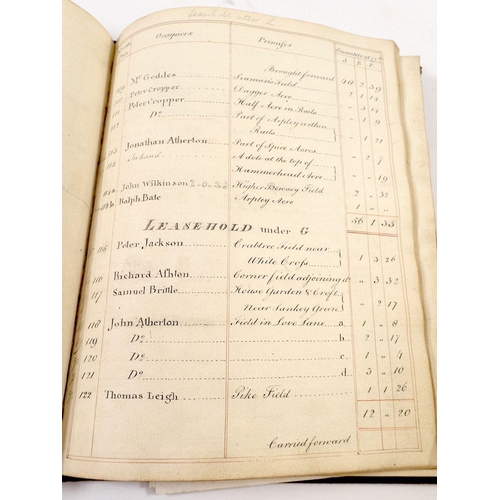 Occupiers Premises Quantity
A. R. P.
Brought forward 48 2 39
109 Mr Geddes Seamans Field 2 1 14
110 Peter Cropper Dagger Acre 1 14
111 Peter Cropper Half Acre in Rails 1 9
112 Do Part of Arpley within
Rails 1 21
113 Jonathan Atherton Part of Spice Acres 2 7
114 In hand A dole at the top of
Hummerhead Acre 19
John Wilkinson 2.0.32 Higher Bewsey Field 2 32
Ralph Bate Arpley Acre 1
56 1 35
LEASEHOLD under G
115 Peter Jackson Crabtree Field near
White Cross 1 3 26
116 Richard Ashton Corner field adjoining do " 3 32
117 Samuel Brittle House Garden & Croft
Near Sankey Green " 2 17
118 John Atherton Field in Love Lane a 1 " 8
119 Do b 2 " 17
120 Do c 1 " 4
121 Do d 3 " 10
122 Thomas Leigh Pike Field 1 1 26
12 " 20
Carried forward